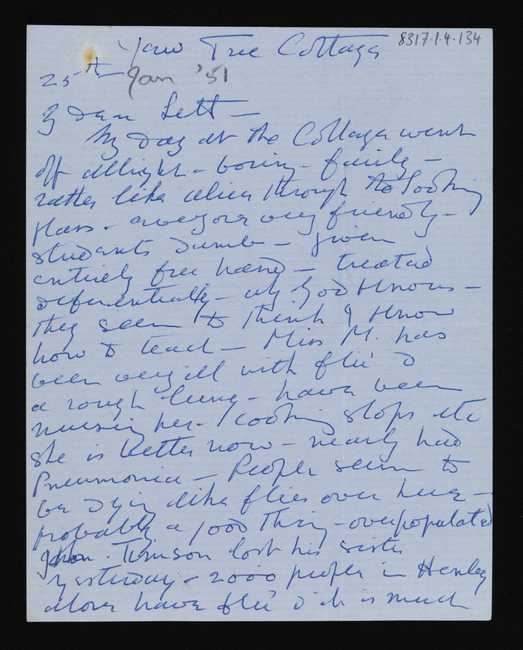 Yew Tree Cottage
8317.1.4.134
25th Jan '51
My Dear Sett —
My Day at the Cottage went
off allright – boring – fairly –
rather like alice through the Looking
Glass – everyone very friendly –
students Dumb – given
entirely free hand – treated
deferentially – why God Knows –
they seem to think I Know
how to teach – Miss M. has
been very ill with flu' &
a rough lung – have been
nursing her – cooking slops etc
she is better now – nearly had
Pneumonia – People seem to
be dying like flies over here –
probably a good thing – overpopulated
John Timson lost his sister
yesterday – 2000 people in Henley
alone have flu' & it is much